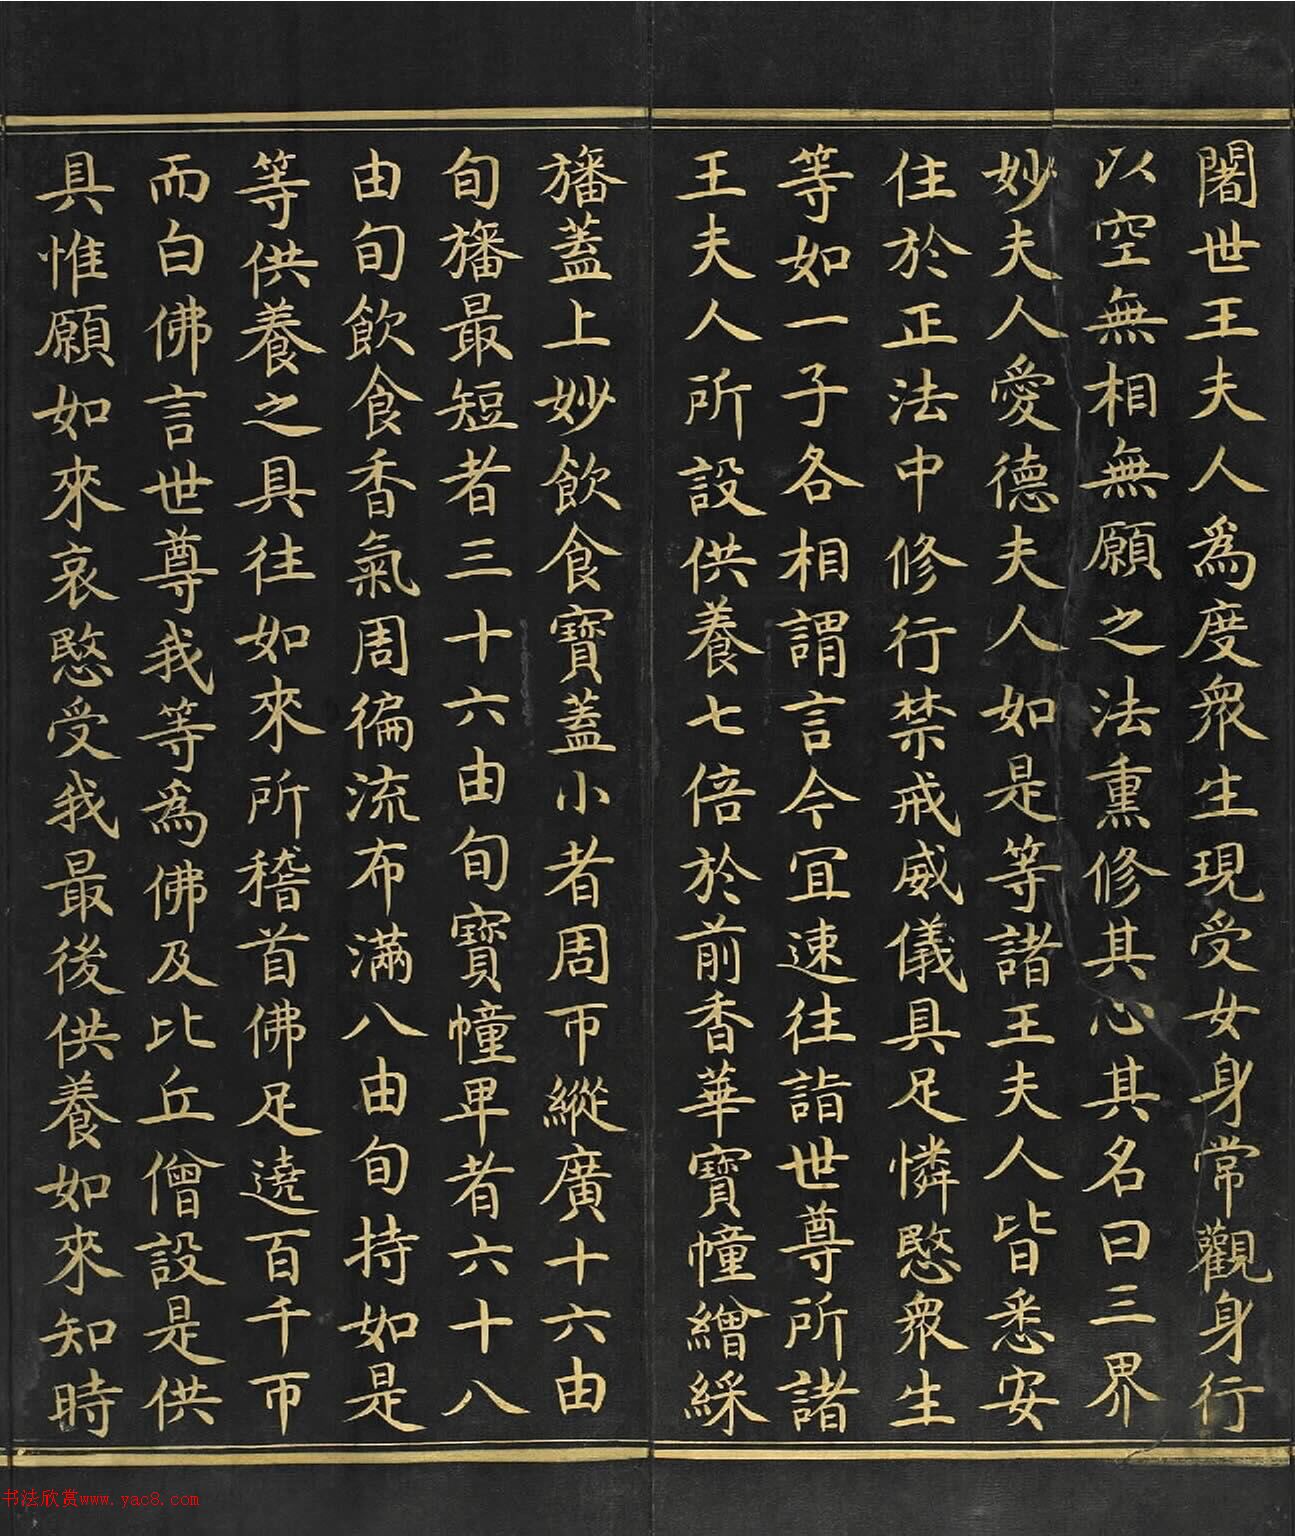 闍世王夫人為度衆生現受女身常觀身行
以空無相無願之法熏修其心其名曰三界
妙夫人愛德夫人如是等諸王夫人皆悉安
住於正法中修行禁戒威儀具足憐愍衆生
等如一子各相謂言今宜速往詣世尊所諸
王夫人所設供養七倍於前香華寶幢繒綵
旛蓋上妙飲食寶蓋小者周帀縱廣十六由
旬旛最短者三十六由旬寶幢卑者六十八
由旬飲食香氣周徧流布滿八由旬持如是
等供養之具往如來所稽首佛足遶百千帀
而白佛言世尊我等為佛及比丘僧設是供
具惟願如來哀愍受我最後供養如來知時
书法欣赏www.yac8.com